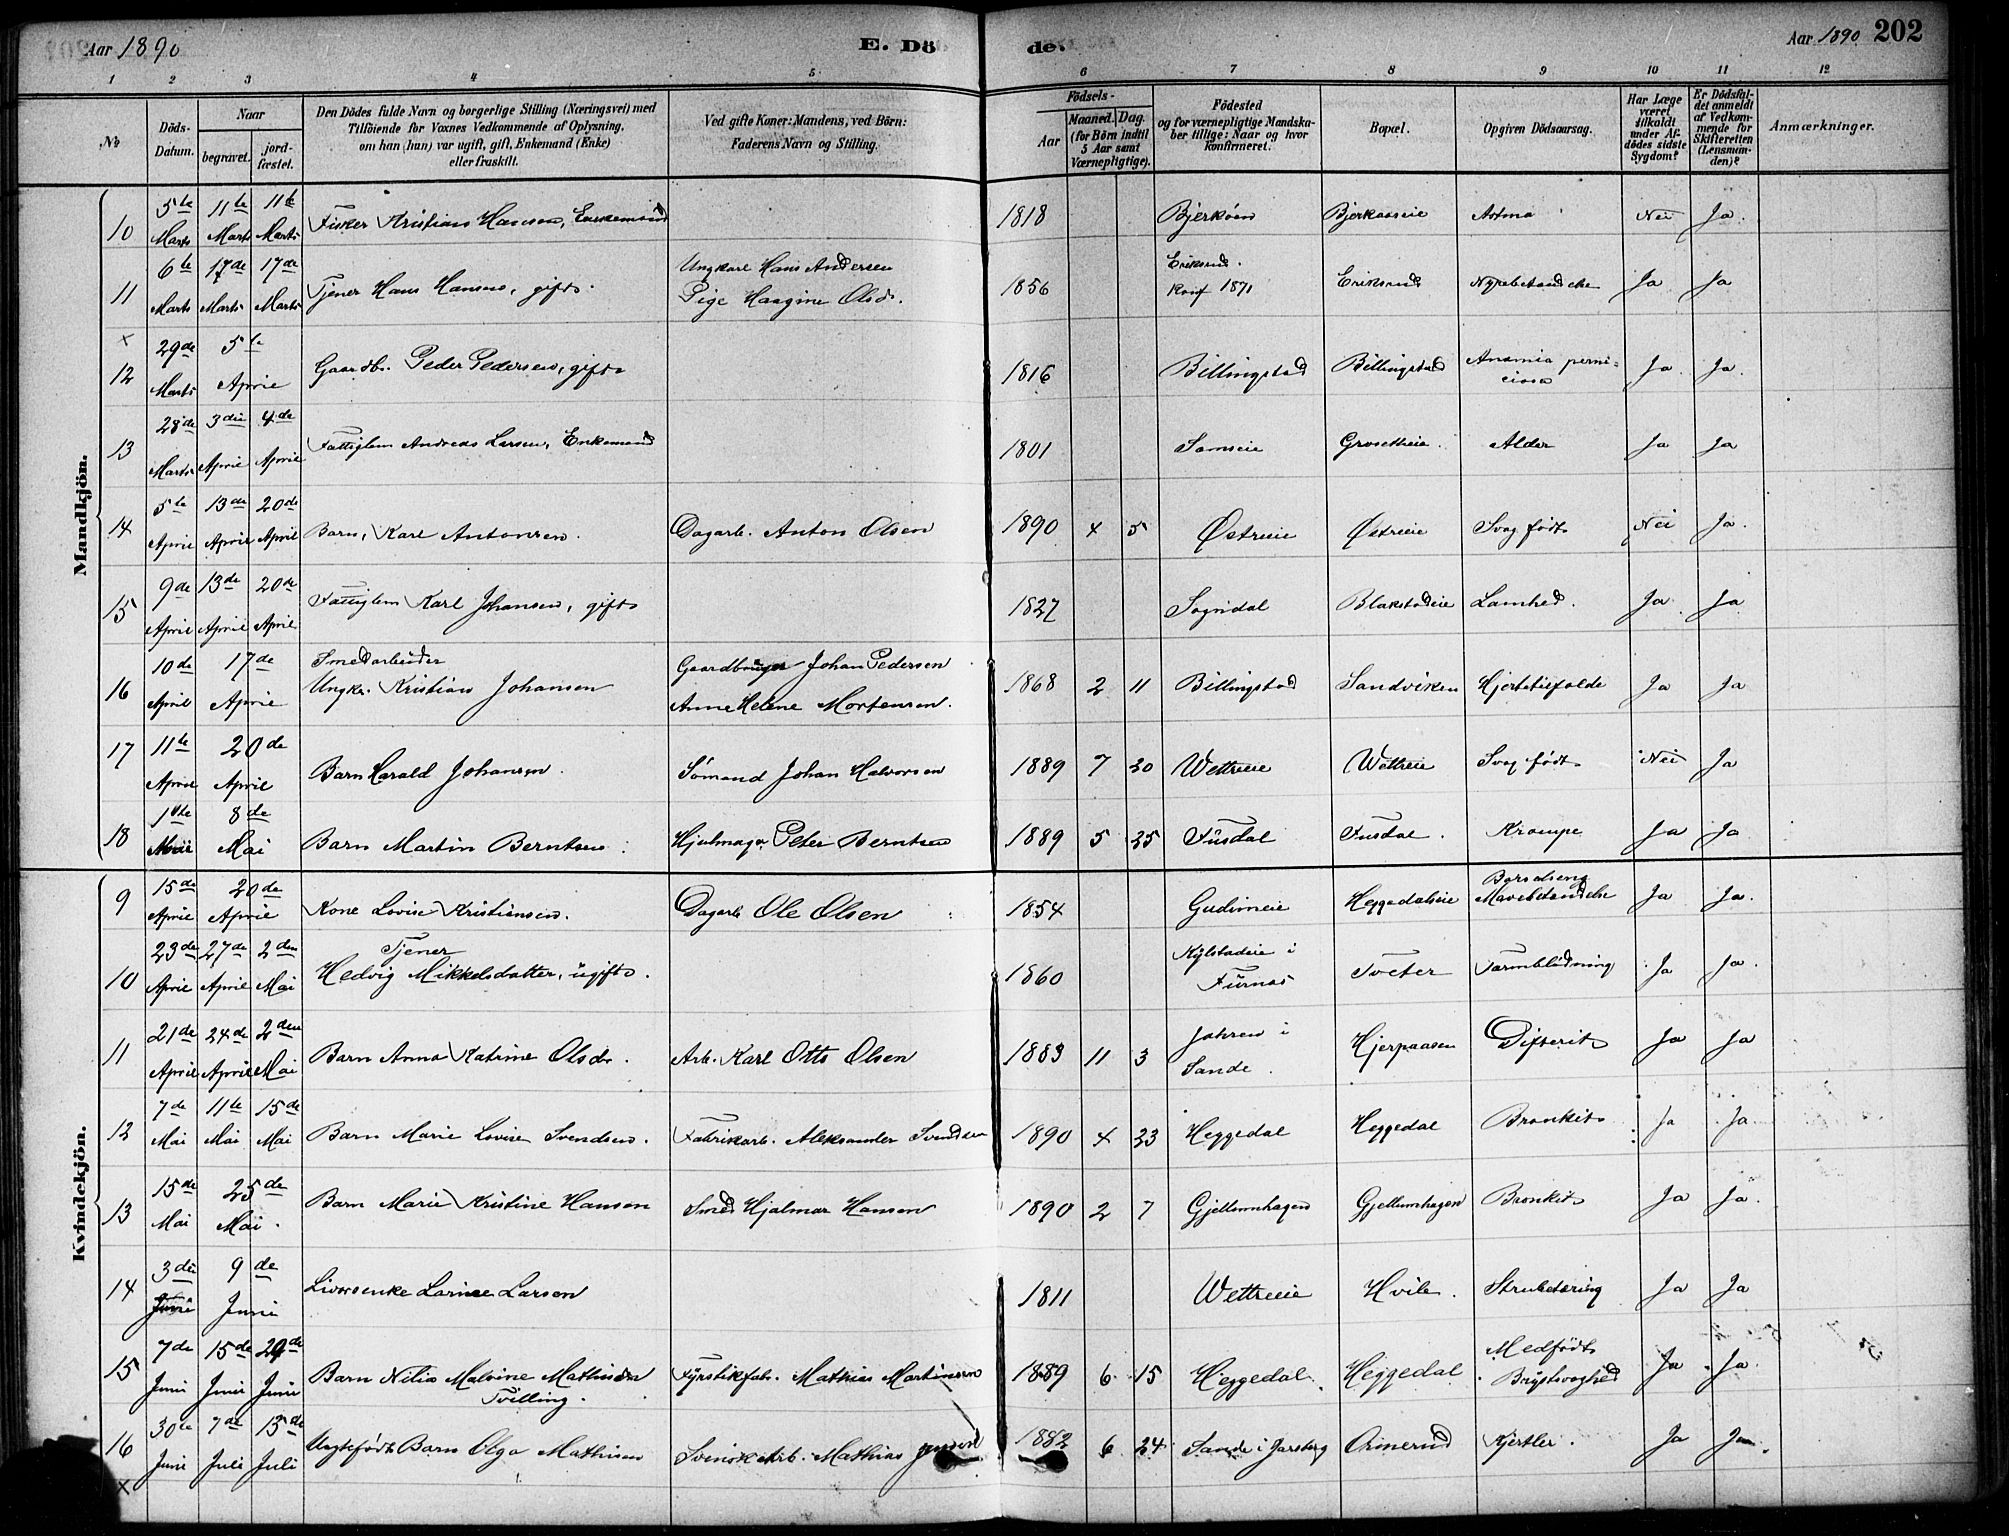 Aar 1890 E. Dö de. Aar 1890. 202
1 2 3 4 5 6 7 8 9 10 11 12
№ Döds-Datum. Naar begravet. jord-fæstet. Den Dödes fulde Navn og borgerlige Stilling (Næringsvei) med Tilföiende for Voxnes Vedkommende af Oplysning, om han (hun) var ugift, gift, Enkemand (Enke) eller fraskilt. Ved gifte Koner: Mandens, ved Börn: Faderens Navn og Stilling. Födsels- Aar Maaned. Dag. (for Börn indtil 5 Aar samt Værnepligtige). Födested og for værnepligtige Mandska-ber tillige: Naar og hvor konfirmeret. Bopæl. Opgiven Dödsaarsag. Har Læge været tilkaldt under Af-dödes sidste Sygdom? Er Dödsfal-det anmeldt af Vedkom-mende for Skifteretten (Lensman-den)? Anmærkninger.
Mandkjön.
10 5te Marts 11te Marts 11te Marts Fisker Kristian Hansen, Enkemand 1818 Bjerköen Bjerkaaseie Astma Nei Ja.
11 6te Marts 17de Marts 17de Marts Tjener Hans Hansen, gift. Ungkarl Hans Andersen Pige Haagine Olsd. 1856 Eriksrud. Konf 1871 Eriksrud Nyrebetændelse Ja Ja
× 12 29de Marts 5te April Gaardbr. Peder Pedersen, gift 1816 Billingstad Billingstad Anæmia perni-ciosa Ja. Ja.
13 28de Marts 3die April 4de April Fattiglem Andreas Larsen, Enkemand 1801 Semseie Grosetheie. Alder Ja Ja
14 5te April 13de April 20de April Barn, Karl Antonsen. Dagarb. Anton Olsen 1890 4 5 Østreeie Østreeie Svag født Nei Ja.
15 9de April 13de April 20de April Fattiglem Karl Johansen, gift 1827 Sogndal Blakstadeie Lamhed. Ja. Ja
16 10de April 17de April Smedarbeider Ungkr. Kristian Johansen Gaardbruger Johan Pedersen Anne Helene Mortensen. 1868 2 11 Billingstad Sandviken Hjertetilfælde Ja Ja
17 11te April 20de April Barn Harald Johansen. Sömand Johan Halvorsen 1889 7 20 Wettreeie Wettreeie Svag födt Nei Ja
18 1ste Mai 8de Mai Barn Martin Berntsen. Hjulmager Peter Berntsen 1889 5 25 Fusdal Fusdal. Krampe Ja Ja
Kvindekjön.
9 15de April 20de April Kone Lovise Kristiansen. Dagarb Ole Olsen 1854 Gudimeie Heggedalseie Barselseng Mavebetændelse Ja Ja.
10 23de April 27de April 2den Mai Tjener Hedvig Mikkelsdatter, ugift. 1860 Kylstadeie i Furnæs Tveter Tarmblödning Ja Ja.
11 21de April 24de April 2den Mai Barn Anna Katrine Olsdr. Arb. Karl Otto Olsen 1883 11 3 Jahren i Sande. Hjerpaasen Difterit Ja Ja
12 7de Mai 11te Mai 15de Mai Barn Marie Lovise Svendsen. Fabrikarb. Aleksander Svendsen 1890 4 23 Heggedal Heggedal Bronkit Ja Ja
13 15de Mai 25de Mai. Barn Marie Kristine Hansen Smed Hjalmar Hansen 1890 2 7 Gjellumhagen Gjellumhagen Bronkit Ja Ja.
14 3die Juni 9de Juni Livörsenke Larine Larsen 1811 Wettreeie Hvile. Strubetæring Ja Ja
15 7de Juni 15de Juni 29de Juni Barn Nilia Malvine Mathisen Tvilling. Fyrstikfab. Mathias Martinsen 1889 6 15 Heggedal. Heggedal Medfødt Brystsvaghed Ja Ja.
16 × 30te Juni 7de Juli 13de Juli Uægtefødt Barn Olga Mathisen Svensk Arb. Mathias Jensen 1882 6 24 Sande i Jarlsberg Ormerud Kjertler. Ja Ja.